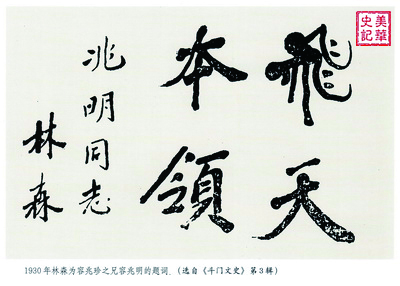 美華
史記
飛天
本領
兆明同志
林森
1930年林森为容兆珍之兄容兆明的题词.（选自《斗门文史》第3辑）